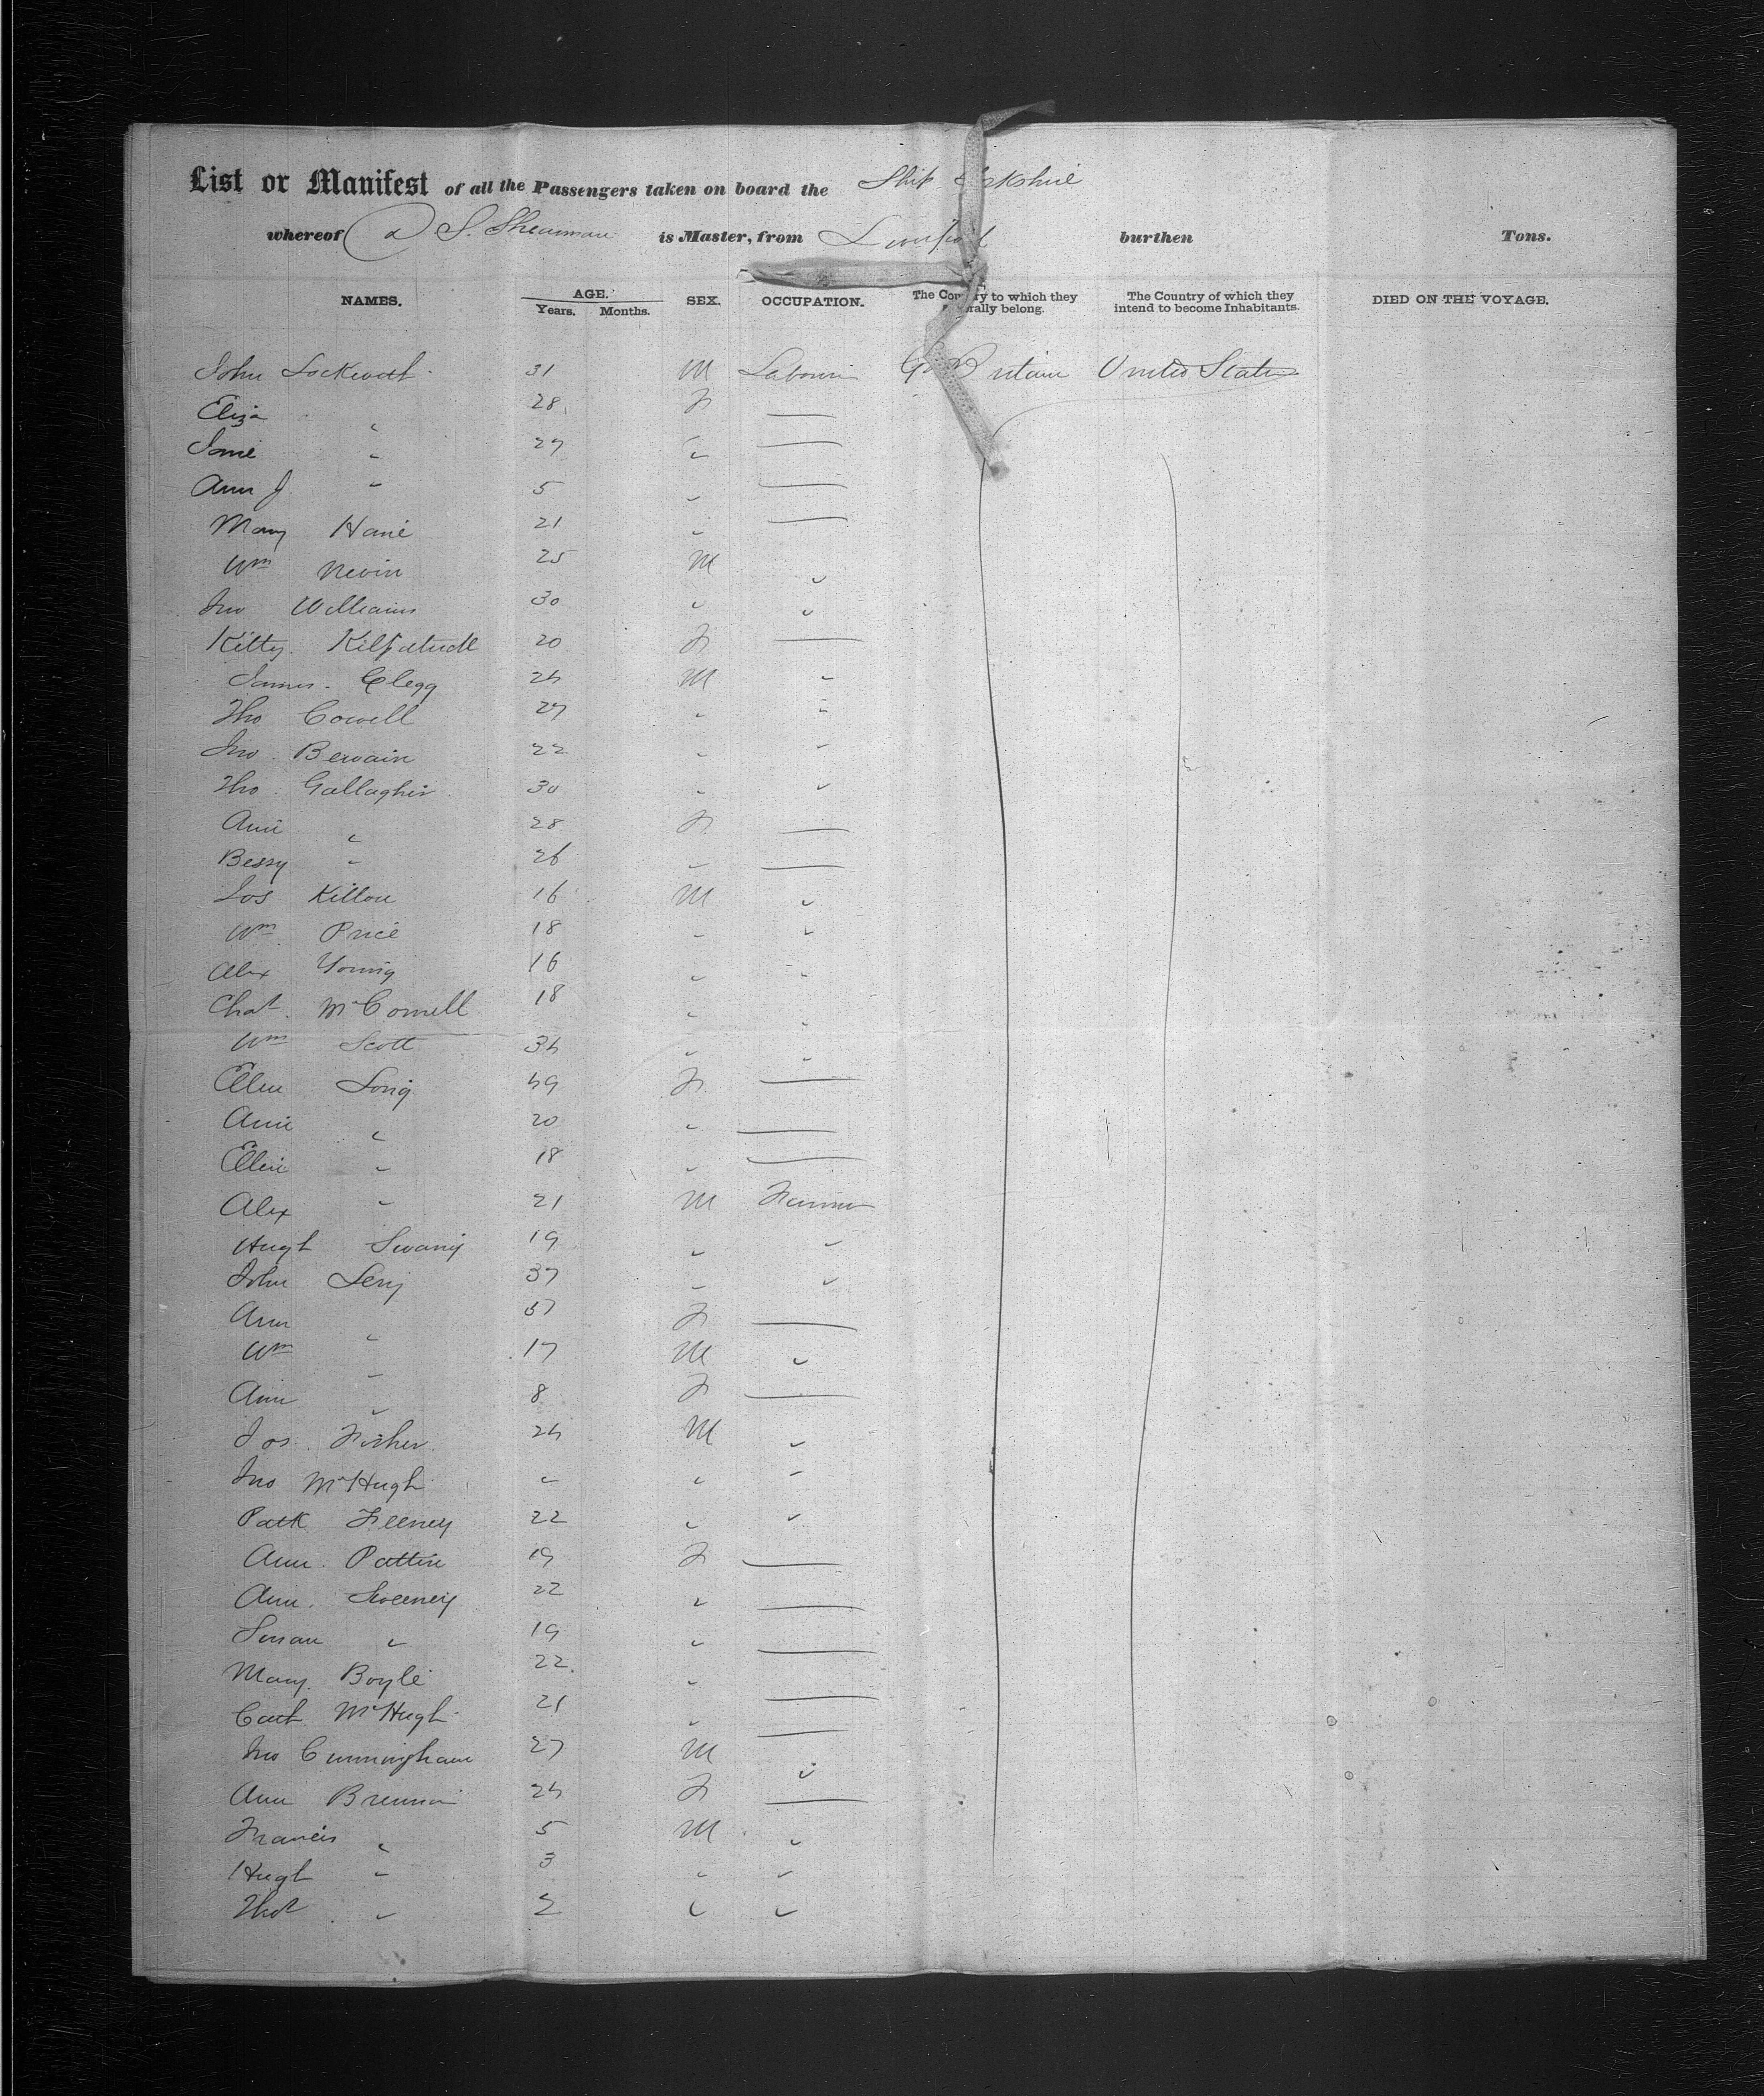 List or Manifest of all the Passengers taken on board the Ship
whereof D S. Shearman is Master, from burthen Tons.
NAMES. AGE. Years. Months. SEX. OCCUPATION. The Country to which they belong. The Country of which they intend to become Inhabitants. DIED ON THE VOYAGE.
John 31 M Labourer Gt Britain United States
Eliza " 28 F —
" 27 " —
Ann J " 5 " —
Mary 21 " —
Wm Nevin 25 M "
Jno Williams 30 " "
Kitty Kilpatrick 20 F —
James Clegg 24 M "
Tho Cowell 27 " "
Jno 22 " "
Tho Gallagher 30 " "
Ann " 28 F —
Bessy " 26 " —
Jos 16 M "
Wm Price 18 " "
Alex Young 16 " "
Chas McConnell 18 " "
Wm Scott 34 " "
Ellen Long 49 F —
Ann " 20 " —
Ellen " 18 " —
Alex " 21 M Farmer
Hugh 19 " "
John 37 " "
Ann " 37 F —
Wm " 17 M "
Ann " 8 F —
Jos Fisher 24 M "
Jno McHugh " " "
Patk Feeney 22 " "
Ann 19 F —
Ann Sweeney 22 " —
Susan " 19 " —
Mary Boyle 22 " —
Cath McHugh 21 " —
Jno Cunningham 27 M "
Ann Brennan 24 F —
Francis " 5 M "
Hugh " 3 " "
Thos " 2 " "